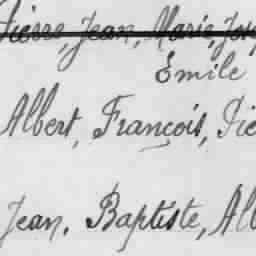 Pierre, Jean, Marie, Jose
Emile
Albert, François, Pie
Jean, Baptiste, Alb